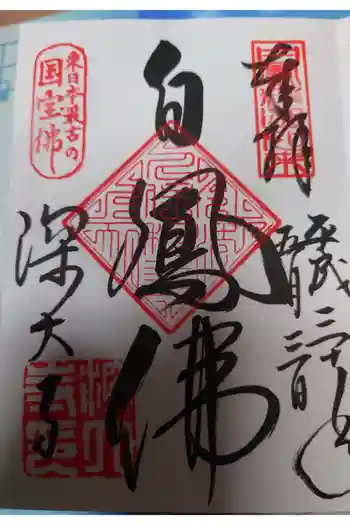 奉拜
平成三十年
五月三日
白鳳佛
東日本最古の
国宝佛
深大寺